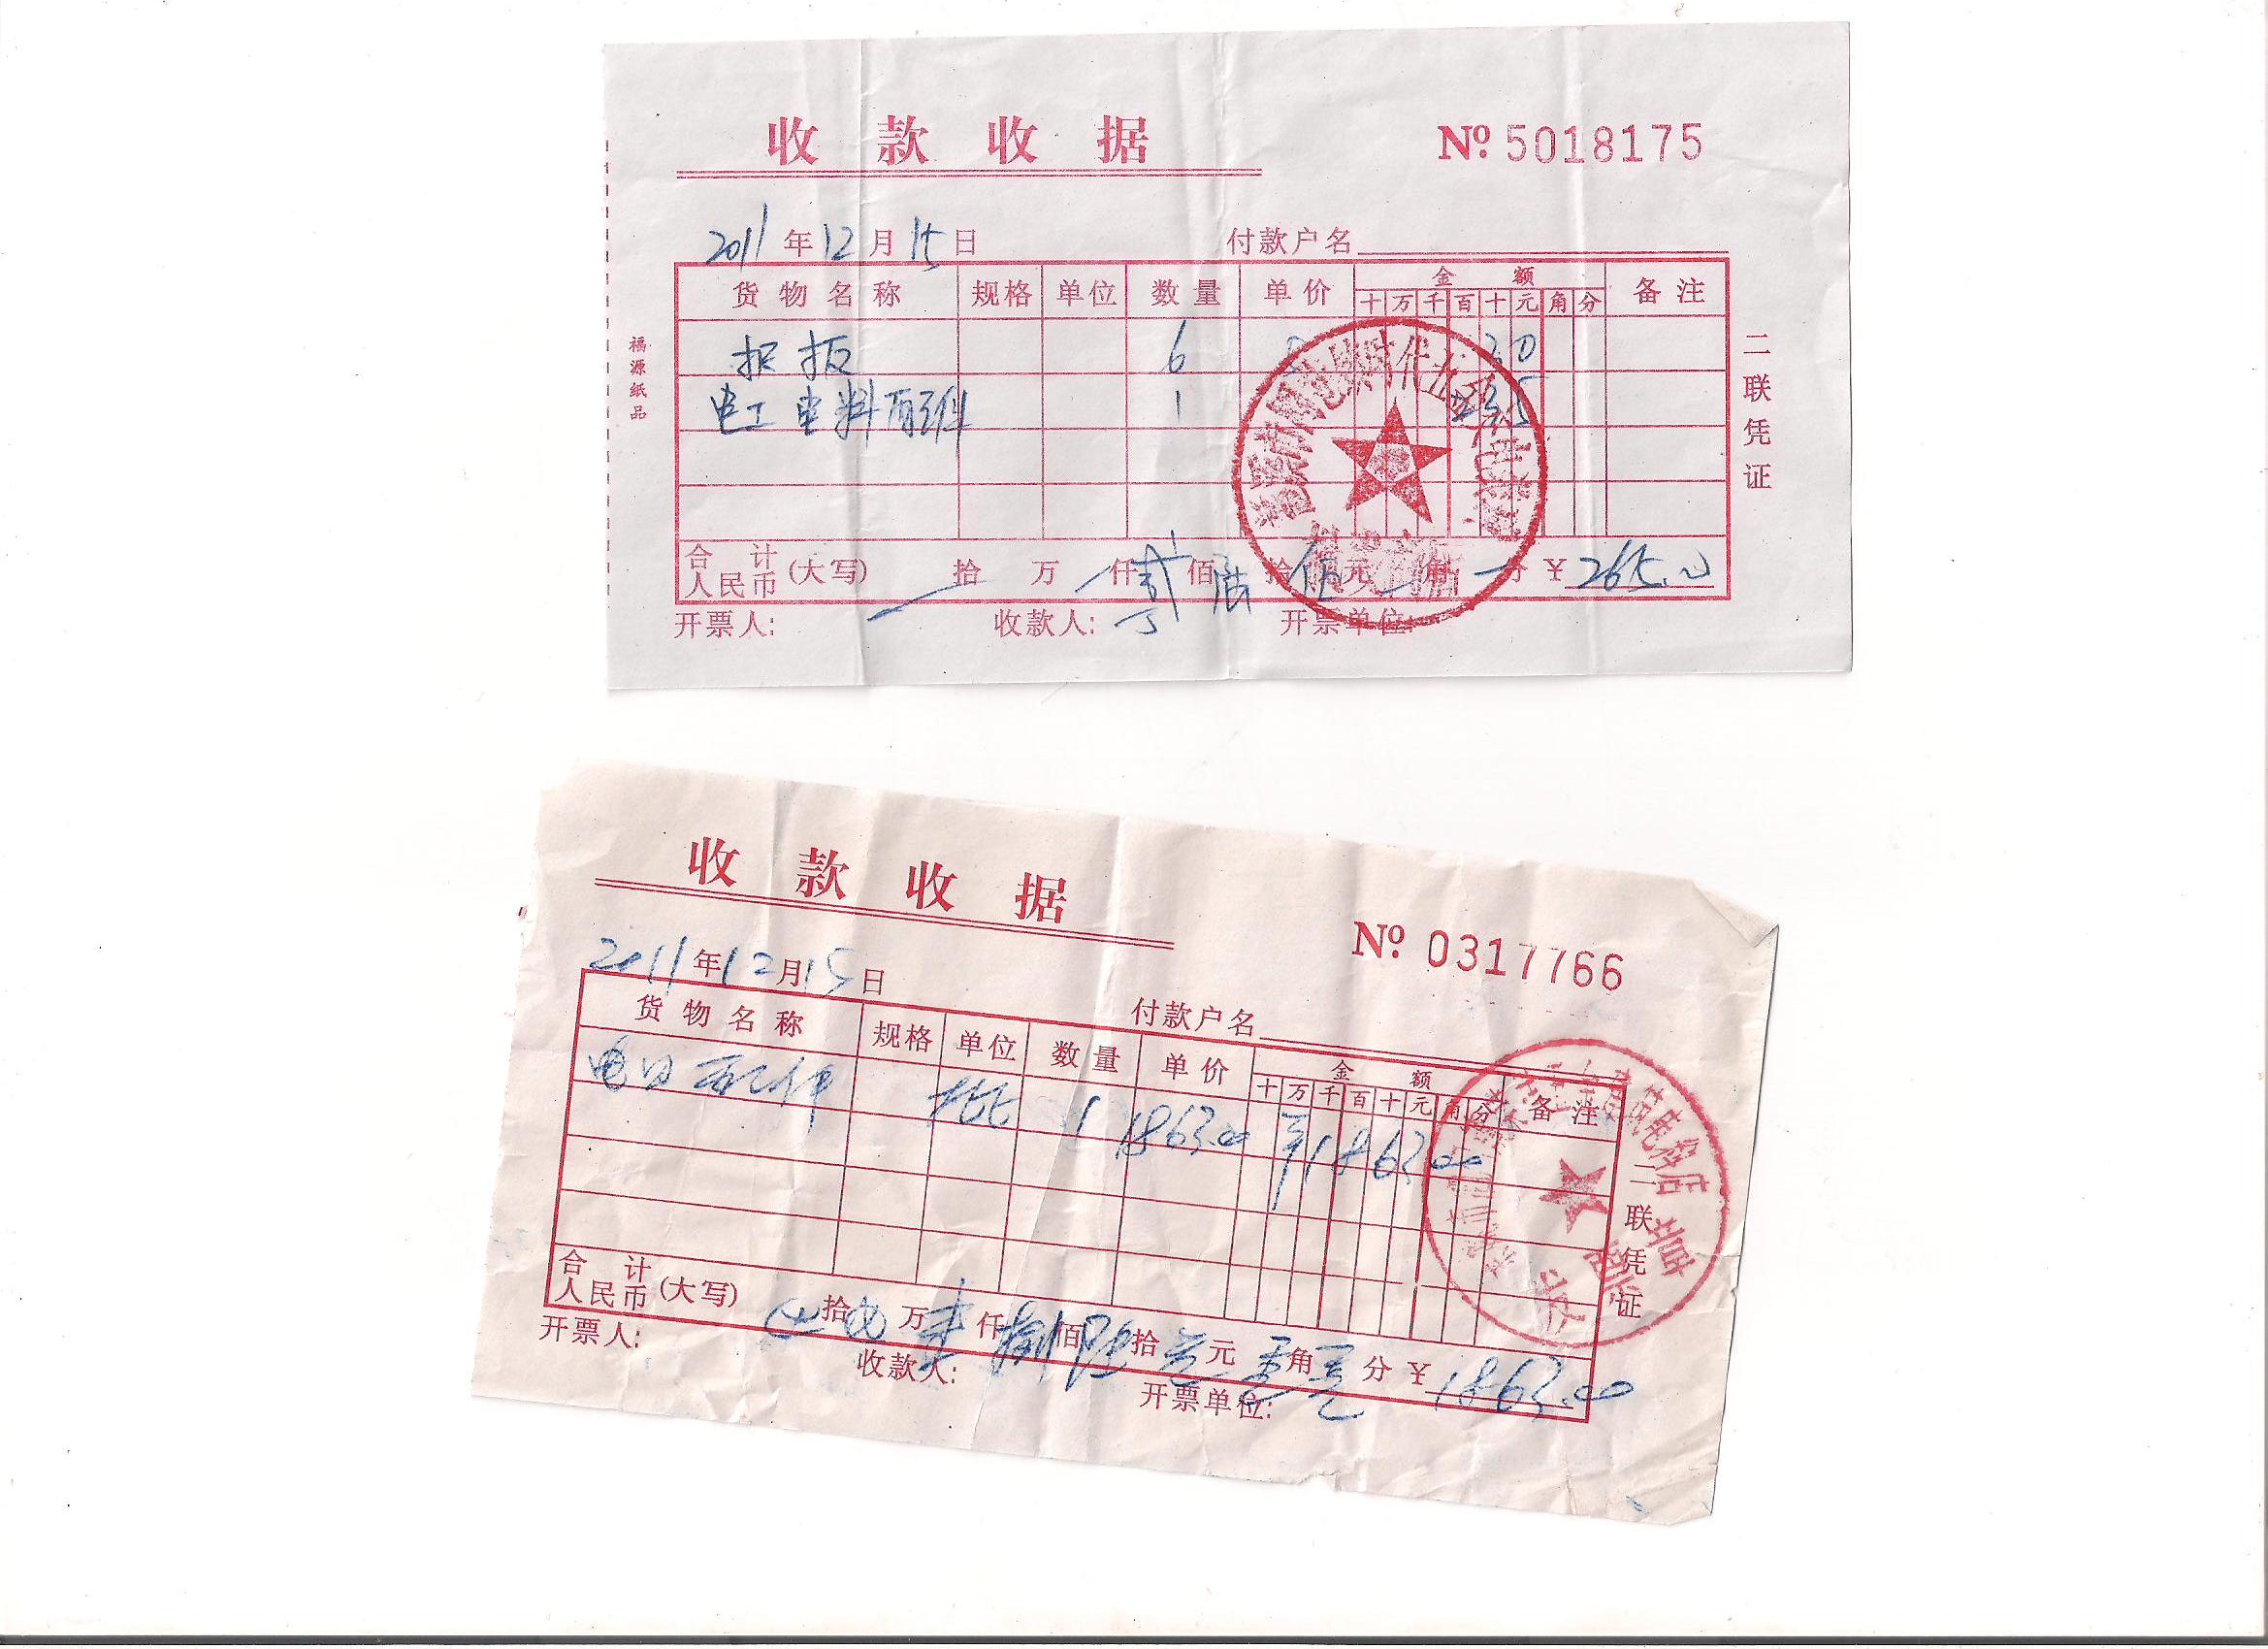 收款收据
№ 5018175
2011年12月15日
付款户名
货物名称 规格 单位 数量 单价 金额 备注
十 万 千 百 十 元 角 分
6 30
电工电料配件 1 235
合计人民币(大写) 拾 万 仟 贰佰 陆拾 伍元 角 分 ¥ 265.00
开票人: 收款人: 开票单位:
福源纸品
二联凭证
收款收据
№ 0317766
2011年12月15日
付款户名
货物名称 规格 单位 数量 单价 金额 备注
十 万 千 百 十 元 角 分
配件 批 1 1863.00 1863.00
合计人民币(大写) 拾 万 仟 捌佰 陆拾 元 零角 零分 ¥ 1863.00
开票人: 收款人: 开票单位:
二联凭证